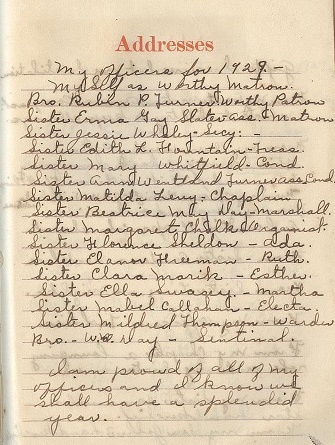 Addresses
My officers for 1929 -
My Self as Worthy Matron.
Bro. Rubin P. Turner Worthy Patron
Sister Erma Gay Slater Ass. Matron
Sister Jessie Whaley - Secy: -
Sister Edith L. Fountain - Treas.
Sister Mary Whitfield - Cond.
Sister Ann Wentland Turner Ass. Cond.
Sister Matilda Levy - Chaplain
Sister Beatrice May Day - Marshall.
Sister Margaret Chalk Organist.
Sister Florence Sheldon - Ada.
Sister Elanor Freeman - Ruth.
Sister Clara Marik - Esther.
Sister Ella Swasey - Martha
Sister Mabel Callahan - Electa.
Sister Mildred Thompson - Warder
Bro. - W.R. Day - Sintinal.
I am proud of all of my
officers and I know we
shall have a splendid
year.